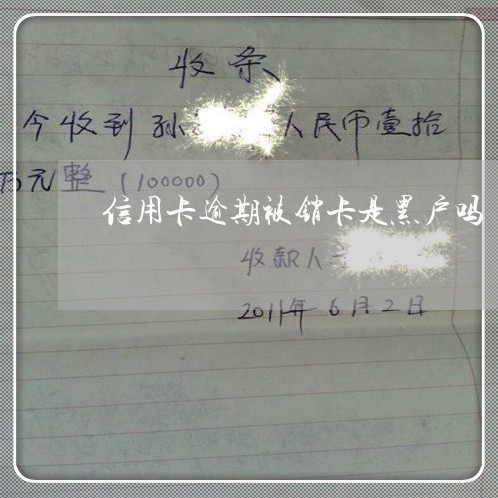 收条
今收到孙 人民币壹拾
万元整(100000)
信用卡逾期被销卡是黑户吗
收款人
2011年6月2日